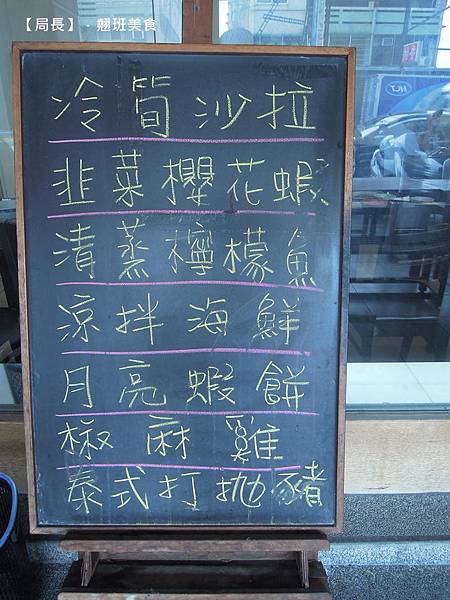 【局長】‧翹班美食
冷筍沙拉
韭菜櫻花蝦
清蒸檸檬魚
涼拌海鮮
月亮蝦餅
椒麻雞
泰式打拋豬